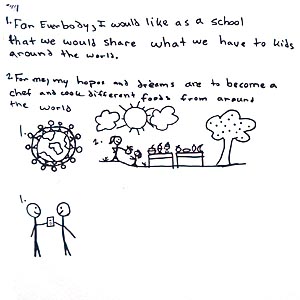 1. For Everbody, I would like as a school
that we would share what we have to kids
around the world.
2. For me, my hopes and dreams are to become a
chef and cook different foods from around
the world
1.
2.
1.